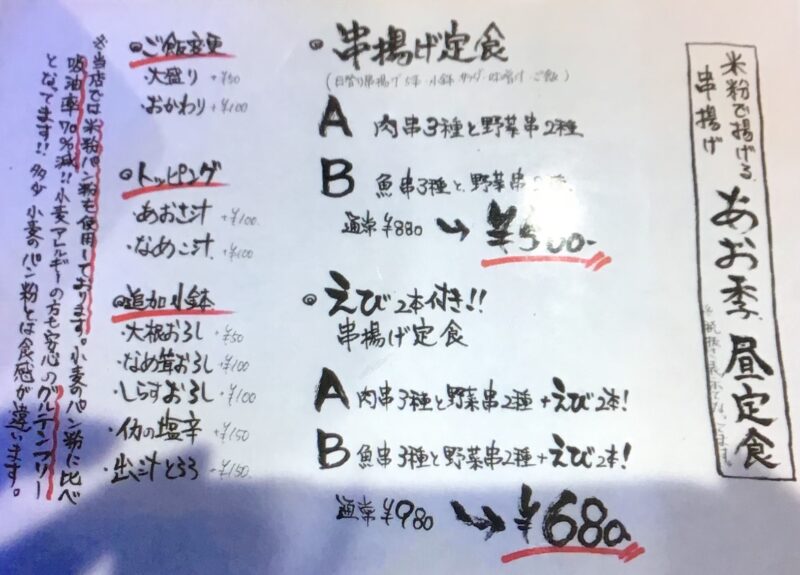 米粉で揚げる
串揚げ
あお季 昼定食
※税抜き表示でございます。
串揚げ定食
(日替り串揚げ5本 小鉢 サラダ 味噌汁 ご飯)
A 肉串3種と野菜串2種
B 魚串3種と、野菜串2種
通常¥880 → ¥500-
えび2本付き!!
串揚げ定食
A 肉串3種と野菜串2種+えび2本!
B 魚串3種と野菜串2種+えび2本!
通常¥980 → ¥680-
ご飯変更
・大盛り +¥50
・おかわり +¥100
トッピング
・あおさ汁 +¥100
・なめこ汁 +¥100
追加小鉢
・大根おろし +¥50
・なめ茸おろし +¥100
・しらすおろし +¥100
・イカの塩辛 +¥150
・出汁とろろ +¥150
※当店では米粉パン粉を使用しております。小麦のパン粉に比べ
吸油率70%減!!小麦アレルギーの方も安心のグルテンフリー
となってます!!多少小麦のパン粉とは食感が違います。